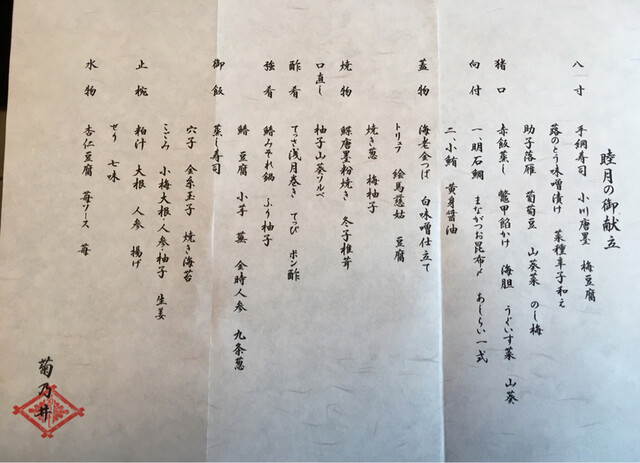 睦月の御献立
八寸 手綱寿司 小川唐墨 梅豆腐
蕗のとう味噌漬け 菜種辛子和え
助子落雁 葡萄豆 山葵菜 のし梅
猪口 赤飯蒸し 鼈甲餡かけ 海胆 うぐいす菜 山葵
向付 一、明石鯛 まながつお昆布〆 あしらい一式
二、小鮪 黄身醤油
蓋物 海老金つば 白味噌仕立て
トリュフ 絵馬慈姑 豆腐
焼き葱 梅柚子
焼物 鰈唐墨粉焼き 冬子椎茸
口直し 柚子山葵ソルベ
酢肴 てっさ浅月巻き てっぴ ポン酢
強肴 鰆みぞれ鍋 ふり柚子
鰆 豆腐 小芋 蕪 金時人参 九条葱
御飯 蒸し寿司
穴子 金糸玉子 焼き海苔
こごみ 小梅大根人参柚子 生姜
止椀 粕汁 大根 人参 揚げ
せり 七味
水物 杏仁豆腐 苺ソース 苺
菊乃井